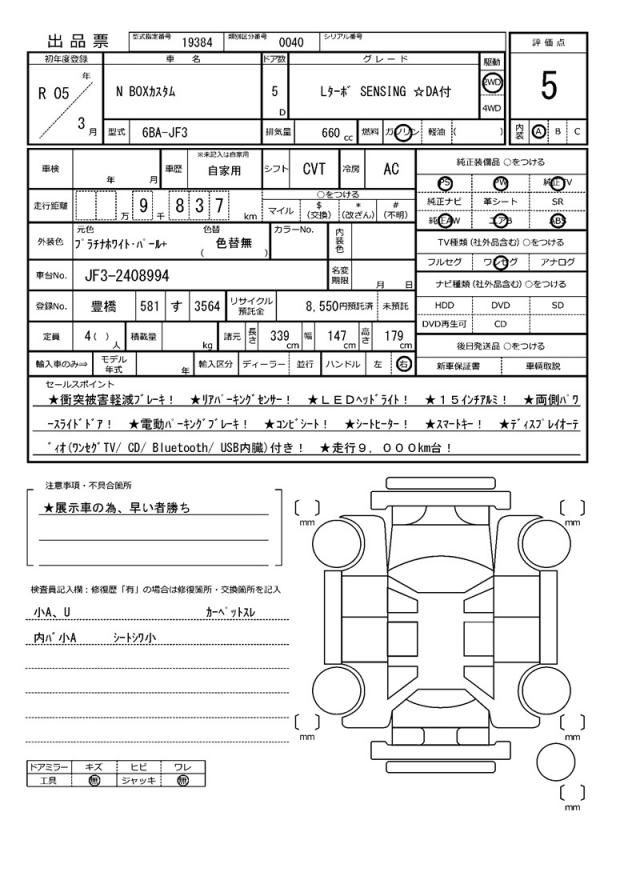 出品票 型式指定番号 19384 類別区分番号 0040 シリアル番号
初年度登録 車名 ドア数 グレード 駆動 評価点
R 05 年 3 月 N BOXカスタム 5 D Lターボ SENSING ☆DA付 2WD 4WD 5
型式 6BA-JF3 排気量 660 cc 燃料 ガソリン 軽油 ( ) 内装 A B C
車検 年 月 車歴 ※未記入は自家用 自家用 シフト CVT 冷房 AC
純正装備品 ○をつける
PS PW 純正TV
純正ナビ 革シート SR
純正AW エアB ABS
走行距離 万 9 千 8 3 7 km
○をつける
マイル $(交換) *(改ざん) #(不明)
外装色 元色 プラチナホワイト・パール+ 色替 ( 色替無 ) カラーNo. 内装色
TV種類(社外品含む)○をつける
フルセグ ワンセグ アナログ
車台No. JF3-2408994 名変期限 月 日
ナビ種類(社外品含む)○をつける
HDD DVD SD
DVD再生可 CD
登録No. 豊橋 581 す 3564 リサイクル預託金 8,550円預託済 未預託
定員 4( )人 積載量 kg 諸元 長さ 339 cm 幅 147 cm 高さ 179 cm
後日発送品 ○をつける
新車保証書 車輌取説
輸入車のみ⇒ モデル年式 年 輸入区分 ディーラー 並行 ハンドル 左 右
セールスポイント
★衝突被害軽減ブレーキ! ★リアパーキングセンサー! ★LEDヘッドライト! ★15インチアルミ! ★両側パワ
ースライドドア! ★電動パーキングブレーキ! ★コンビシート! ★シートヒーター! ★スマートキー! ★ディスプレイオーデ
ィオ(ワンセグTV/ CD/ Bluetooth/ USB内臓)付き! ★走行9,000km台!
注意事項・不具合箇所
★展示車の為、早い者勝ち
検査員記入欄:修復歴「有」の場合は修復箇所・交換箇所を記入
小A、U カーペットスレ
内バ小A シートシワ小
ドアミラー キズ ヒビ ワレ
工具 無 ジャッキ 無
mm
mm
mm
mm
mm